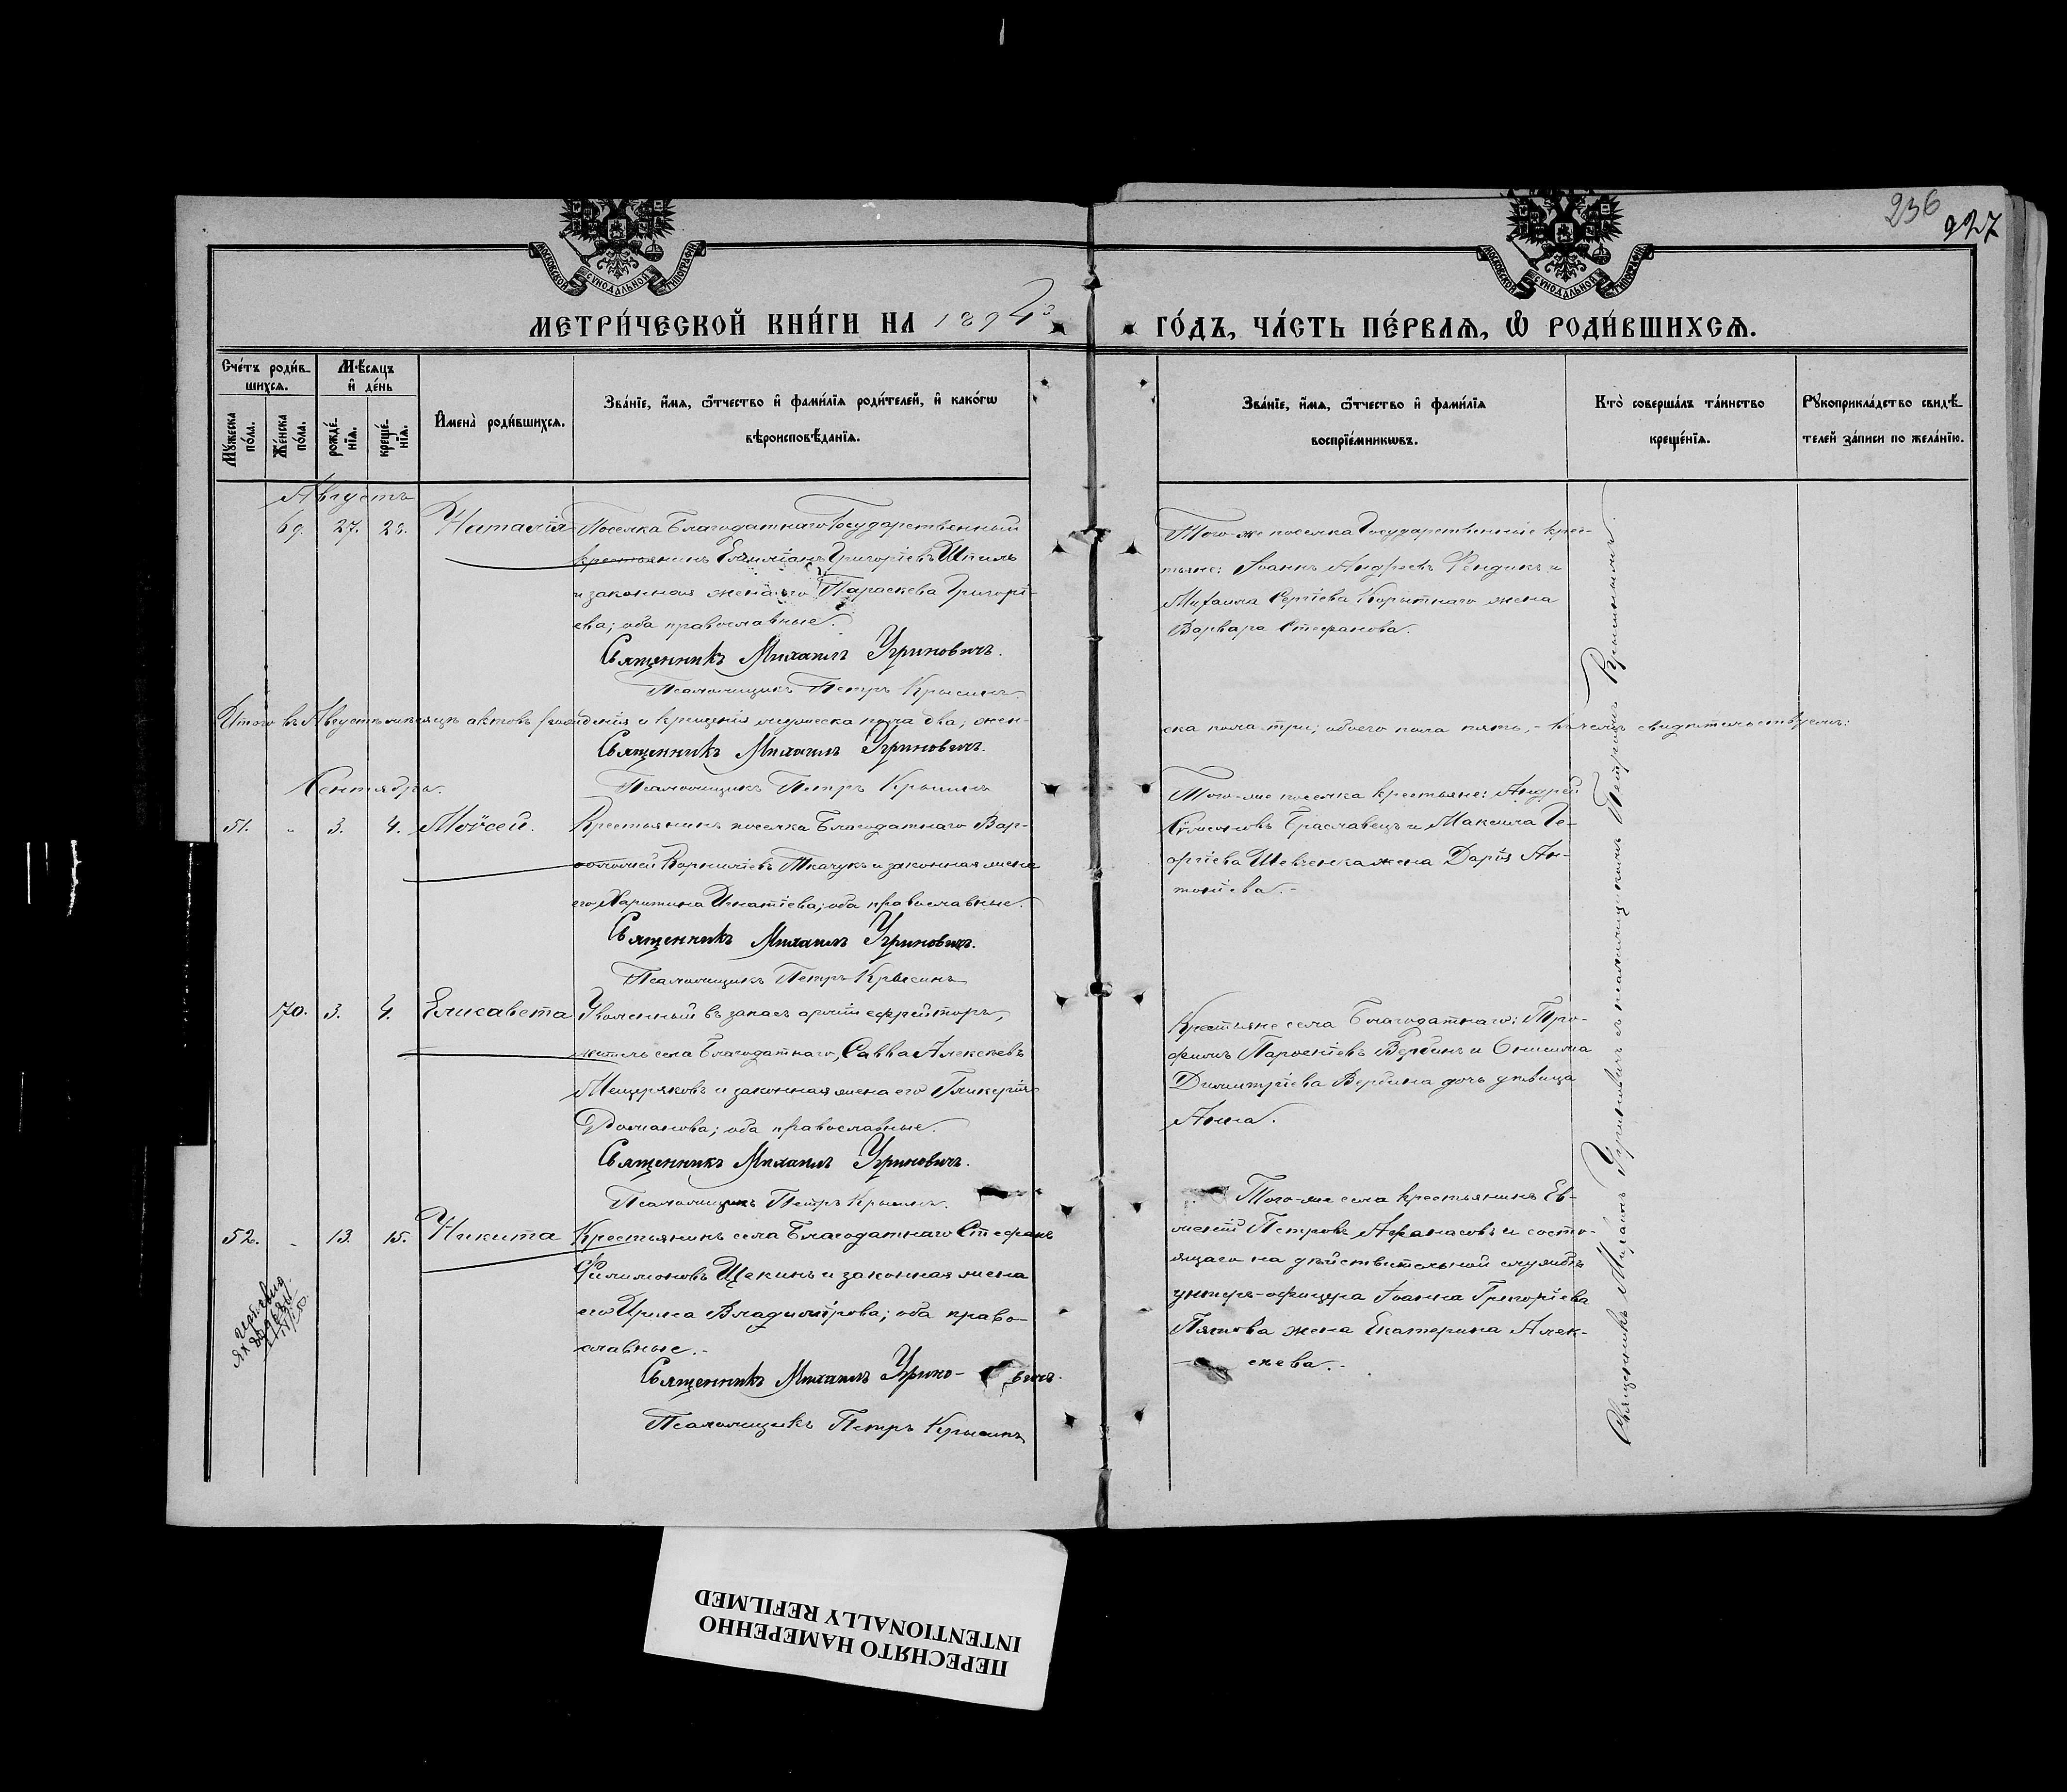 236
927
МОСКОВСКОЙ СУНОДАЛЬНОЙ ТИПОГРАФІИ
МОСКОВСКОЙ СУНОДАЛЬНОЙ ТИПОГРАФІИ
МЕТРИ́ЧЕСКОЙ КНИ́ГИ НА 1894й
ГО́ДЪ, ЧА́СТЬ ПЕ́РВАѦ, Ѽ РОДИ́ВШИХСѦ.
Сче́тъ роди́в-
шихсѧ.
Мꙋ́жеска по́ла.
Же́нска по́ла.
Мѣ́сѧцъ
и҆ де́нь
рожде́-
нїѧ.
креще́-
нїѧ.
И҆мена̀ роди́вшихсѧ.
Зва́нїе, и҆́мѧ, ѻ҆́тчество и҆ фами́лїѧ роди́телей, и҆ како́гѡ
вѣроисповѣ́данїѧ.
Зва́нїе, и҆́мѧ, ѻ҆́тчество и҆ фами́лїѧ
воспрїе́мникѡвъ.
Кто̀ соверша́лъ та́инство
креще́нїѧ.
Рꙋкоприкла́дство свидѣ́-
телей за́писи по жела́нїю.
Августъ
69. 27. 28. Наталія Поселка Благодатнаго Государственный
крестьянинъ Емиліанъ Григоріевъ Шпиль
и законная жена его Параскева Григорі-
ева; оба православные.
Священникъ Михаилъ Угриновичъ.
Псаломщикъ Петръ Крысинъ
Того-же поселка Государственніе крес-
тьяне: Іоаннъ Андреевъ Фендикъ и
Михаила Сергіева Корытнаго жена
Варвара Стефанова.
Итого въ Августѣ мѣсяцѣ актовъ рожденія и крещенія мужеска пола два; жен-
ска пола три; обоего пола пять, - въ чемъ свидѣтельствуемъ:
Священникъ Михаилъ Угриновичъ.
Псаломщикъ Петръ Крысинъ
Сентябрь.
51. " 3. 4. Моѵсей. Крестьянинъ поселка Благодатнаго Вар-
ѳоломей Корниліевъ Ткачукъ и законная жена
его Харитина Игнатіева; оба православные.
Священникъ Михаилъ Угриновичъ.
Псаломщикъ Петръ Крысинъ
Того-же поселка крестьяне: Андрей
Сѵмеоновъ Браславецъ и Максима Ге-
оргіева Шевченка жена Дарія Ан-
тоніева.-
170. 3. 4. Елисавета Уволенный въ запасъ арміи ефрейторъ,
житель села Благодатнаго, Савва Алексѣевъ
Мещеряковъ и законная жена его Гликерія
Романова; оба православные.
Священникъ Михаилъ Угриновичъ.
Псаломщикъ Петръ Крысинъ.
Крестьяне села Благодатнаго: Тро-
фимъ Парѳеніевъ Вербинъ и Онисима
Димитріева Вербина дочь дѣвица
Анна.
52. - 13. 15. Никита Крестьянинъ села Благодатнаго Стефанъ
Филимоновъ Щекинъ и законная жена
его Ирина Владимірова; оба право-
славные.-
Священникъ Михаилъ Угрино- вичъ.
Псаломщикъ Петръ Крысинъ
Того-же села крестьянинъ Ев-
меній Петровъ Аѳанасовъ и состо-
ящаго на дѣйствительной службѣ
унтеръ-офицера Іоанна Григоріева
Пятова жена Екатерина Алек-
сѣева.-
Священникъ Михаилъ Угриновичъ съ псаломщикомъ Петромъ Крысинымъ.
ПЕРЕСНЯТО НАМЕРЕННО
INTENTIONALLY REFILMED